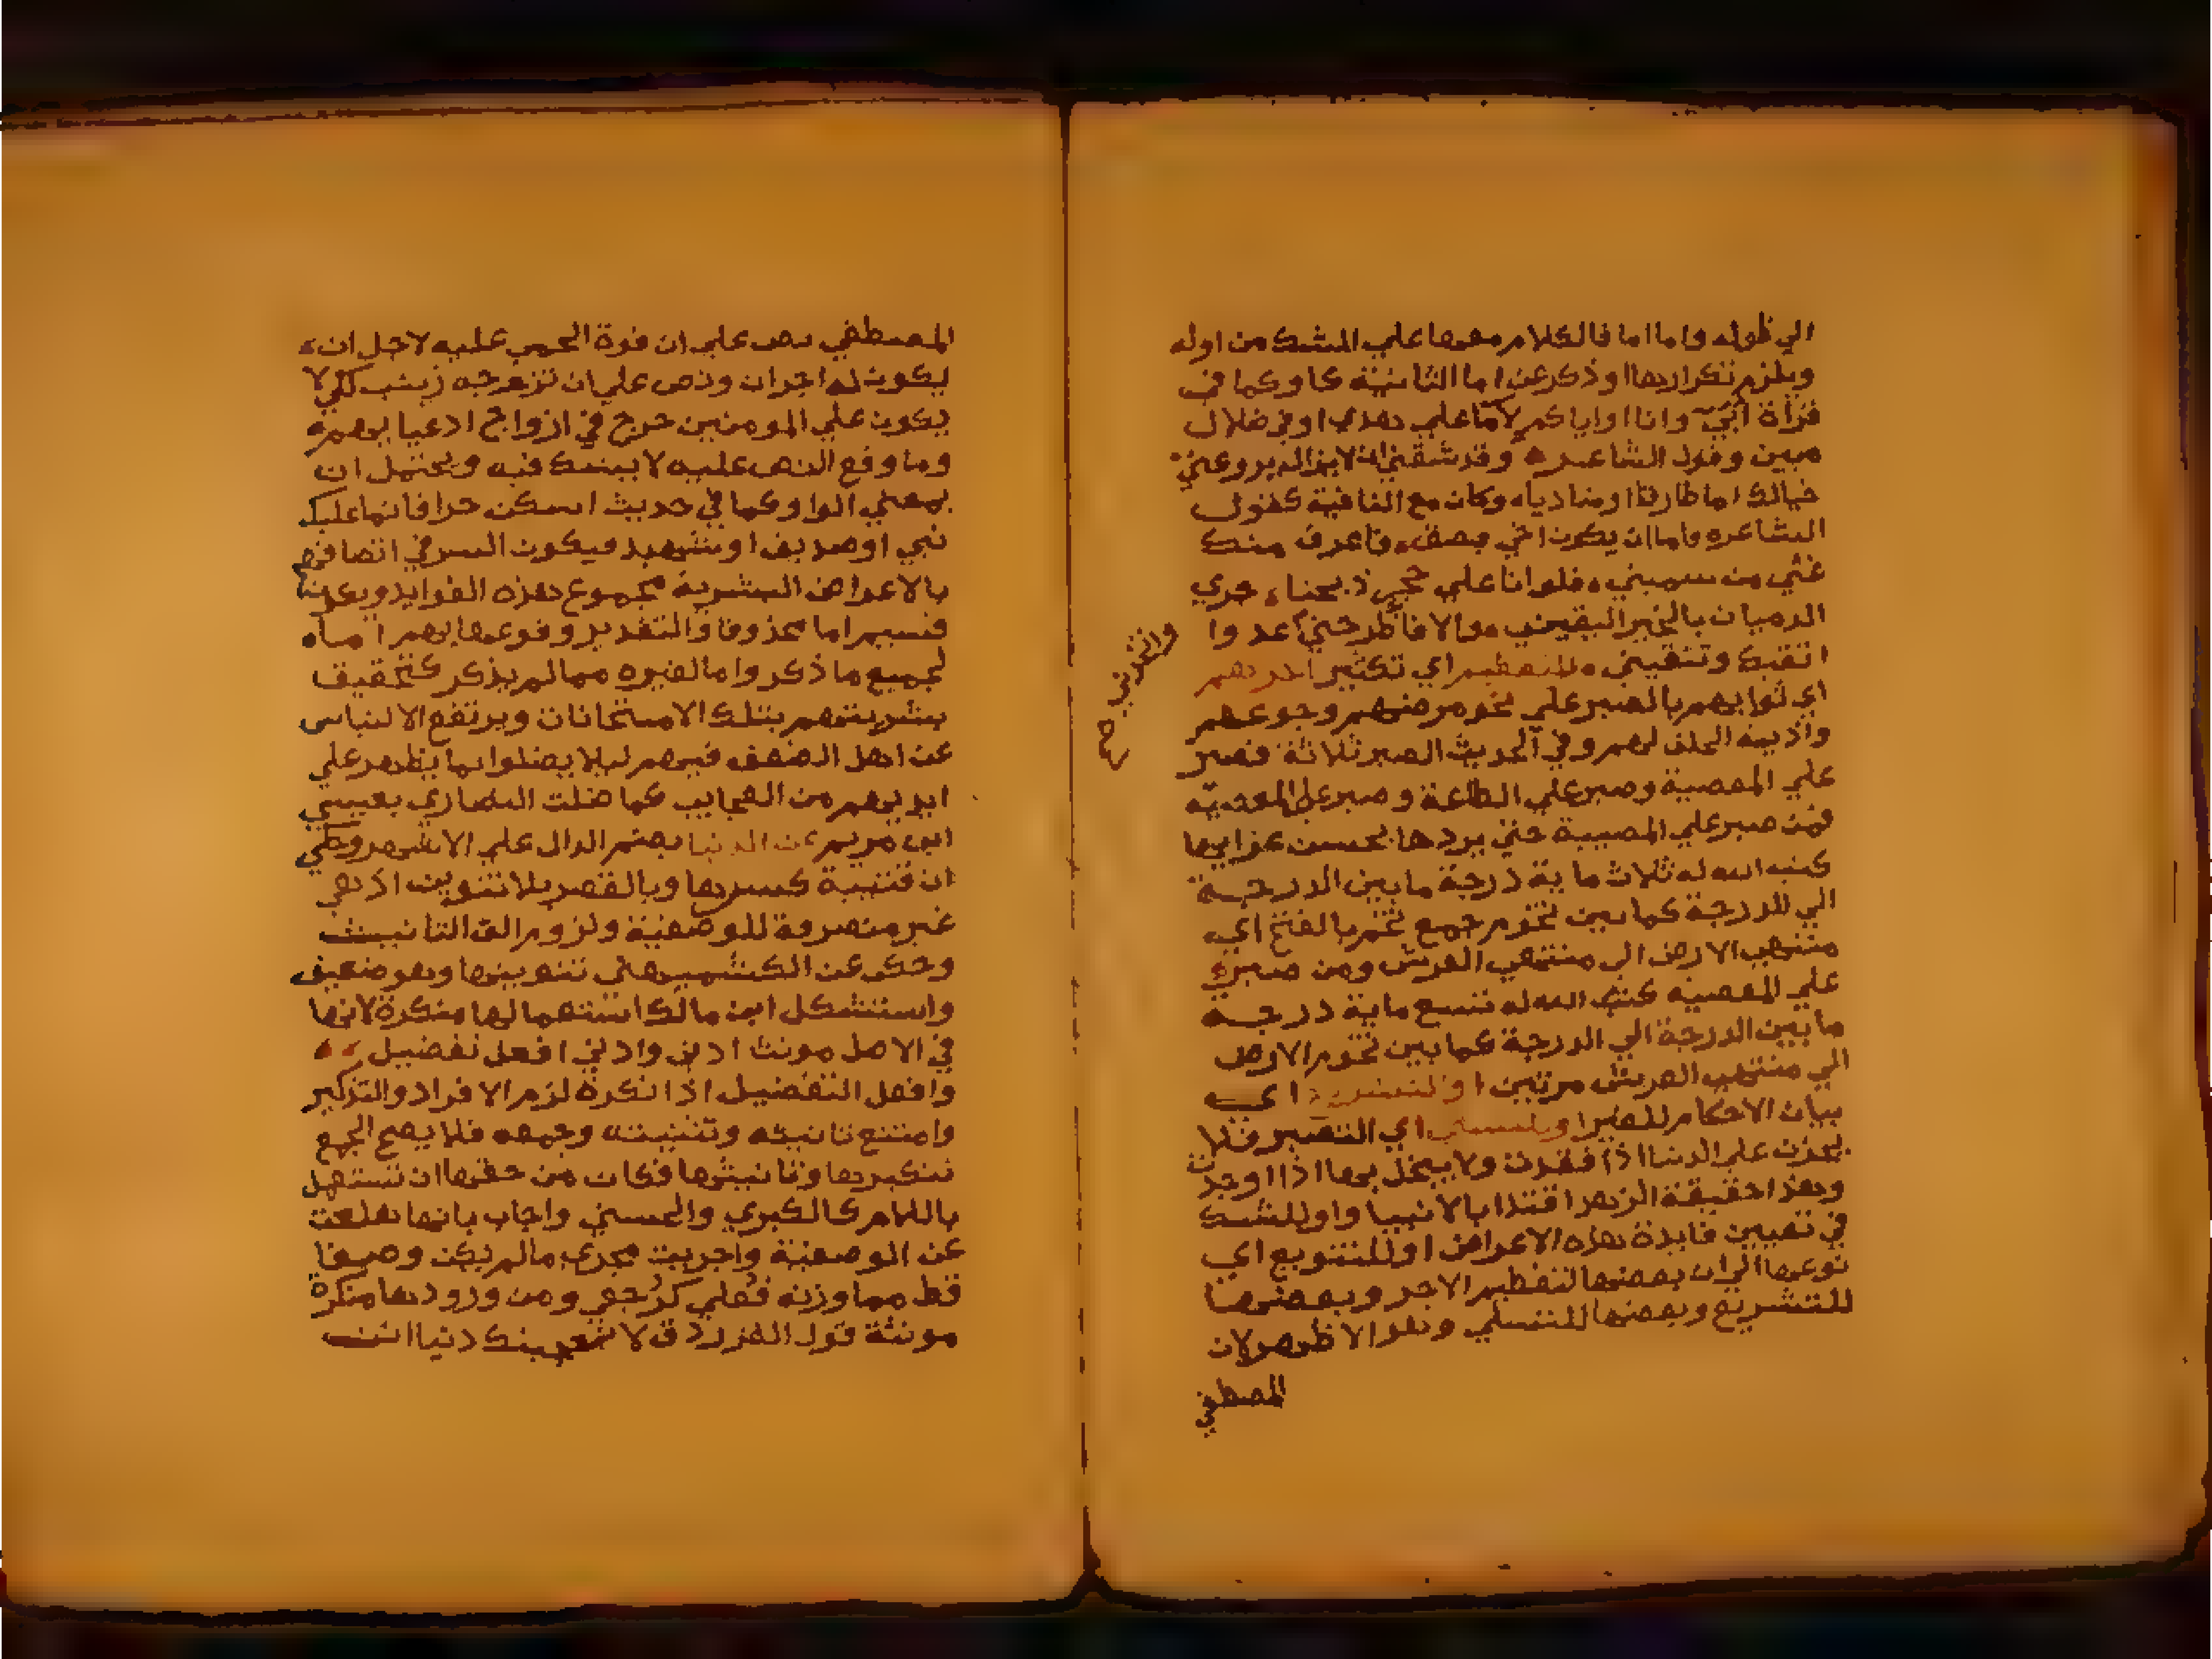 الي قوله واما اما فالكلام معها علي الشك من اوله
ويلزم تكرارها او ذكر عن اما الثانية كاو كما في
قراة ابي وانا او اياكم لاما علي هدي او في ضلال
مبين وقول الشاعر وقد شفني ان لا يزال يروعني
خيالك اما طارقا او مناديا وكان مع النافية كقول
الشاعر فاما ان يكون اخي بصدق فاعرف منك
غثي من سميني فلوانا علي حجر ذبحنا جري
الدميان بالخبر اليقين والا فاطرحني عدوا
اتقيك وتتقيني للتعظيم اي تكثير اجرهم
اي ثوابهم بالصبر علي نحو مرضهم وجوعهم
واذية الخلق لهم وفي الحديث الصبر ثلاثة فصبر
علي المعصية وصبر علي الطاعة وصبر علي المعصية
فمن صبر علي المصيبة حتي يردها بحسن عزايها
كتب الله له ثلاث ماية درجة ما بين الدرجة
الي الدرجة كما بين تخوم جمع تخم بالفتح اي
منتهي الارض الي منتهي العرش ومن صبر
علي المعصية كتب الله له تسع ماية درجة
ما بين الدرجة الي الدرجة كما بين تخوم الارض
الي منتهي العرش مرتين او للتشريع اي
بيان الاحكام للغير او للتسلي اي التصبر فلا
يحزن علي الدنيا اذا فقدت ولا يبخل بها اذا وجدت
وهذا حقيقة الزهد اقتدا بالانبيا واو للشك
في تعيين فايدة هذه الاعراض او للتنويع اي
نوعها الي ان بعضها لتعظيم الاجر وبعضها
للتشريع وبعضها للتسلي وهو الاظهر لان
المصطفي
واتخذني صح
المصطفي نص علي ان قوة الحمي عليه لاجل ان
يكون له اجران ونص علي ان تزوجه زينب لكي لا
يكون علي المومنين حرج في ازواج ادعيايهم
وما وقع النص عليه لا يشك فيه ويحتمل ان
بمعني الواو كما في حديث اسكن حرا فانما عليك
نبي او صديق او شهيد فيكون السر في اتصافهم
بالاعراض البشرية مجموع هذه الفوايد ويكون
قسيم اما محذوفا والتقدير وقوعها بهم اما
لجميع ما ذكر واما لغيره مما لم يذكر كتحقيق
بشريتهم بتلك الامتحانات ويرتفع الالتباس
عن اهل الضعف فيهم ليلا يضلوا بما يظهر علي
ايديهم من العجايب كما ضلت النصاري بعيسي
ابن مريم عن الدنيا بضم الدال علي الاشهر وحكي
ابن قتيبة كسرها وبالقصر بلا تنوين اذ هي
غير منصرفة للوصفية ولزوم الف التانيث
وحكي عن الكشميهني تنوينها وهو ضعيف
واستشكل ابن مالك استعمالها منكرة لانها
في الاصل مونث ادني وادني افعل تفضيل
وافعل التفضيل اذا نكرة لزم الافراد والتذكير
وامتنع تانيثه وتثنيته وجمعه فلا يصح الجمع
تنكيرها وتانيثها فكان من حقها ان تستعمل
باللام كالكبري والحسني واجاب بانها خلعت
عن الوصفية واجريت مجري ما لم يكن وصفا
قط مما وزنه فعلي كرجعي ومن ورودها منكرة
مونثة قول الفرزدق لا تعجبنك دنيا انت